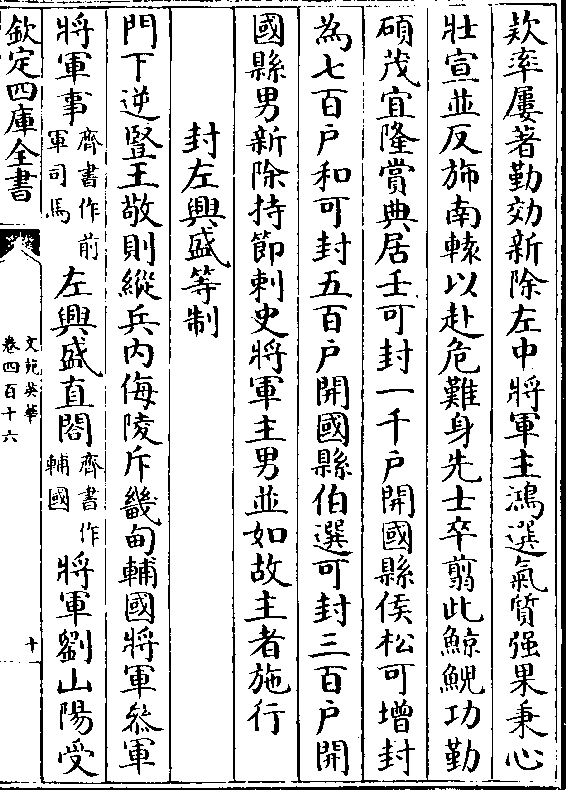 欵率屢著勤効新除左中將軍主鴻選氣質强果秉心
壯宣並反斾南轅以赴危難身先士卒翦此鯨鯢功勤
碩茂宜隆賞典居壬可封一千戶開國縣侯松可增封
為七百戶和可封五百戶開國縣伯選可封三百戶開
國縣男新除持節刺史將軍主男並如故主者施行
封左興盛等制
門下逆豎王敬則縱兵內侮陵斥畿甸輔國將軍叅軍
將軍事齊書作前軍司馬左興盛直閤齊書作輔國將軍劉山陽受
欽定四庫全書
文苑英華
卷四百十六
十